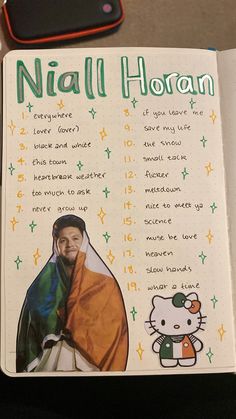 Niall Horan
1. everywhere
2. lover (over)
3. black and white
4. this town
5. heartbreak weather
6. too much to ask
7. never grow up
8. if you leave me
9. save my life
10. the snow
11. small talk
12. flicker
13. meltdown
14. nice to meet ya
15. science
16. must be love
17. heaven
18. slow hands
19. what a time